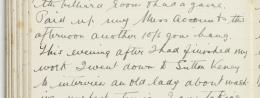 the billiard room & had a game.
Paid up my Mess Account & the
afternoon another 10/- gone bang.
This evening after I had finished my
work I went down to Sutton Veney
to interview an old lady about wash